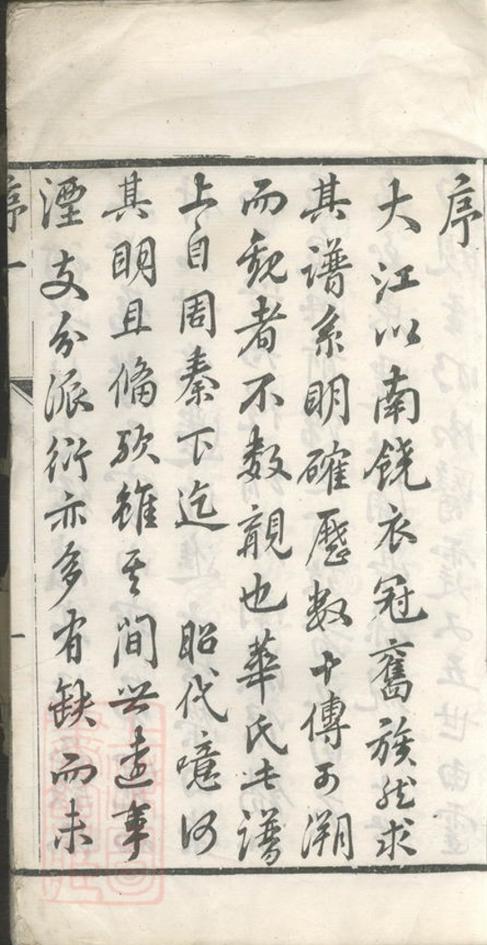 序
大江以南饒衣冠舊族然求
其譜系明確歷数十傳可溯
而觀者不数覯也華氏志譜
上自周秦下迄 昭代噫何
其明且備欤雖其間世遠事
湮支分派衍亦多有缺而未
序 一